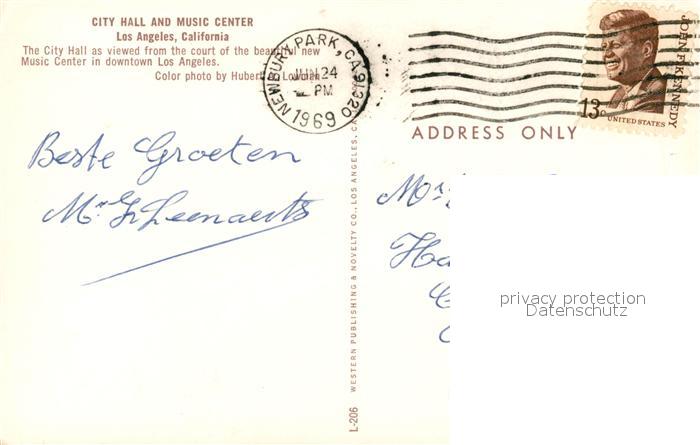 CITY HALL AND MUSIC CENTER
Los Angeles, California
The City Hall as viewed from the court of the beautiful new
Music Center in downtown Los Angeles.
Color photo by Hubert Lowman
NEWBURY PARK, CA 91320
JUN 24
PM
1969
JOHN F. KENNEDY
13c
UNITED STATES
ADDRESS ONLY
Beste Groeten
Mr. G. Leenaerts
Mrs
Ha
L-206 WESTERN PUBLISHING & NOVELTY CO., LOS ANGELES, CA
privacy protection
Datenschutz